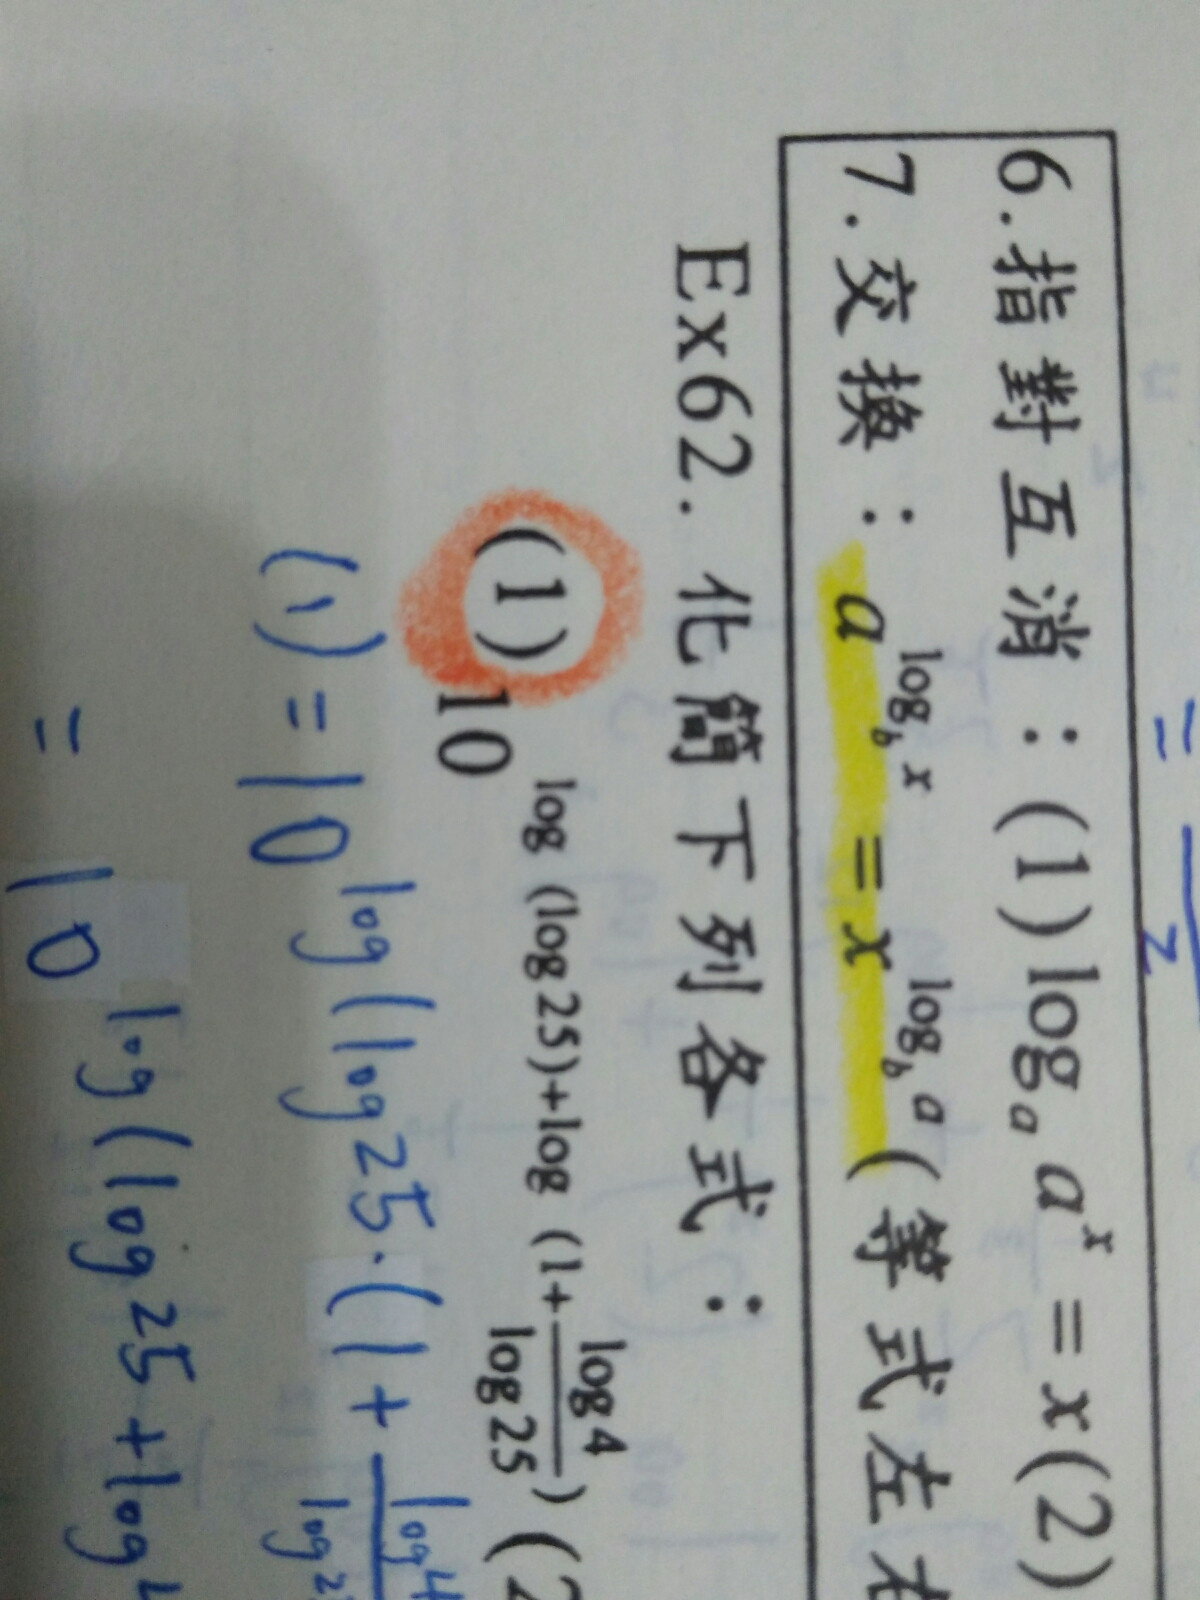 6.指對互消：(1)logₐ aˣ = x(2)
7.交換：a^(log_b x) = x^(log_b a) (等式左右
Ex62. 化簡下列各式：
(1) 10^(log (log25)+log (1+log4/log25)) (2
(1) = 10^(log(log25·(1+log4/log2
= 10^(log(log25+log4